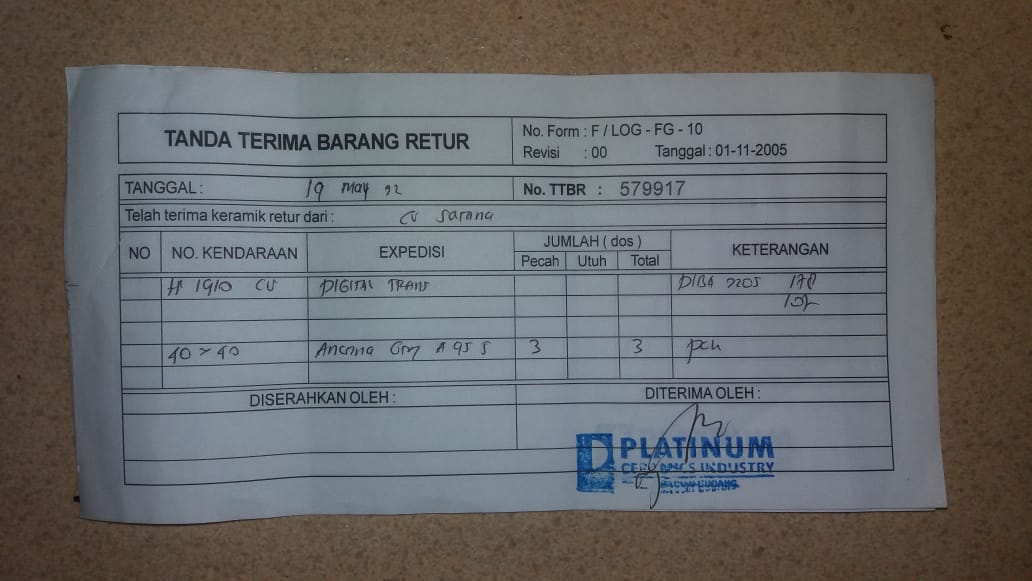 TANDA TERIMA BARANG RETUR
No. Form : F / LOG - FG - 10
Revisi : 00 Tanggal : 01-11-2005
TANGGAL : 19 May 22
No. TTBR : 579917
Telah terima keramik retur dari : CV Sarana
NO NO. KENDARAAN EXPEDISI JUMLAH ( dos ) KETERANGAN
Pecah Utuh Total
1910 CV DIGITAL TRANS DIBA 2205
40 x 40 Ancona A 95 S 3 3 pch
DISERAHKAN OLEH : DITERIMA OLEH :
PLATINUM
CERAMICS INDUSTRY